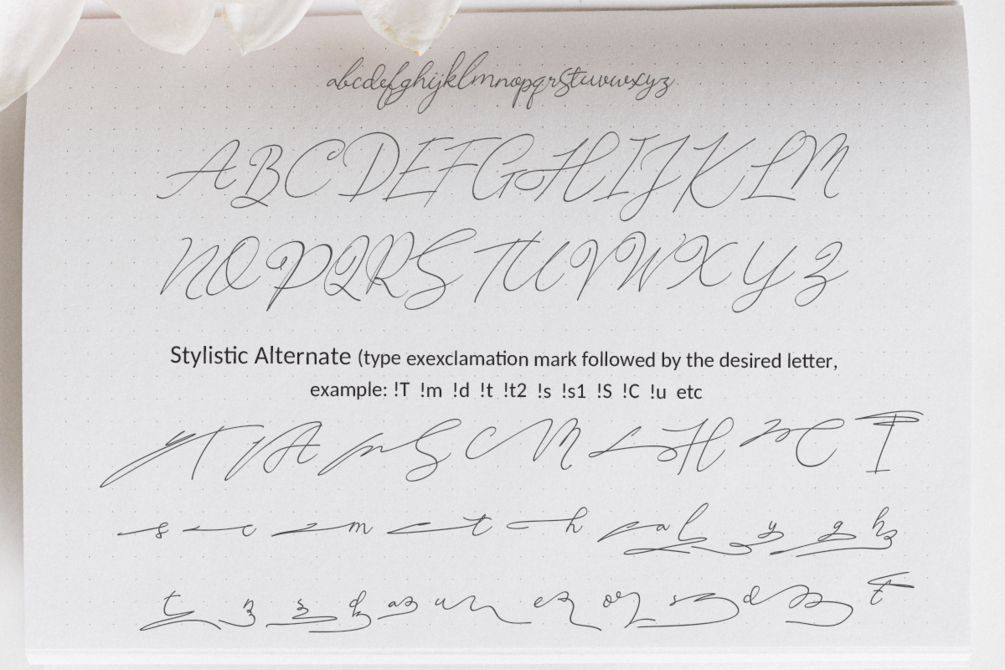 abcdefghijklmnopqrstuvwxyz
ABCDEFGHIJKLM
NOPQRSTUVWXYZ
Stylistic Alternate (type exexclamation mark followed by the desired letter,
example: !T !m !d !t !t2 !s !s1 !S !C !u etc
T A S C M H C T
s c m t h a l y g h
t z s d as u